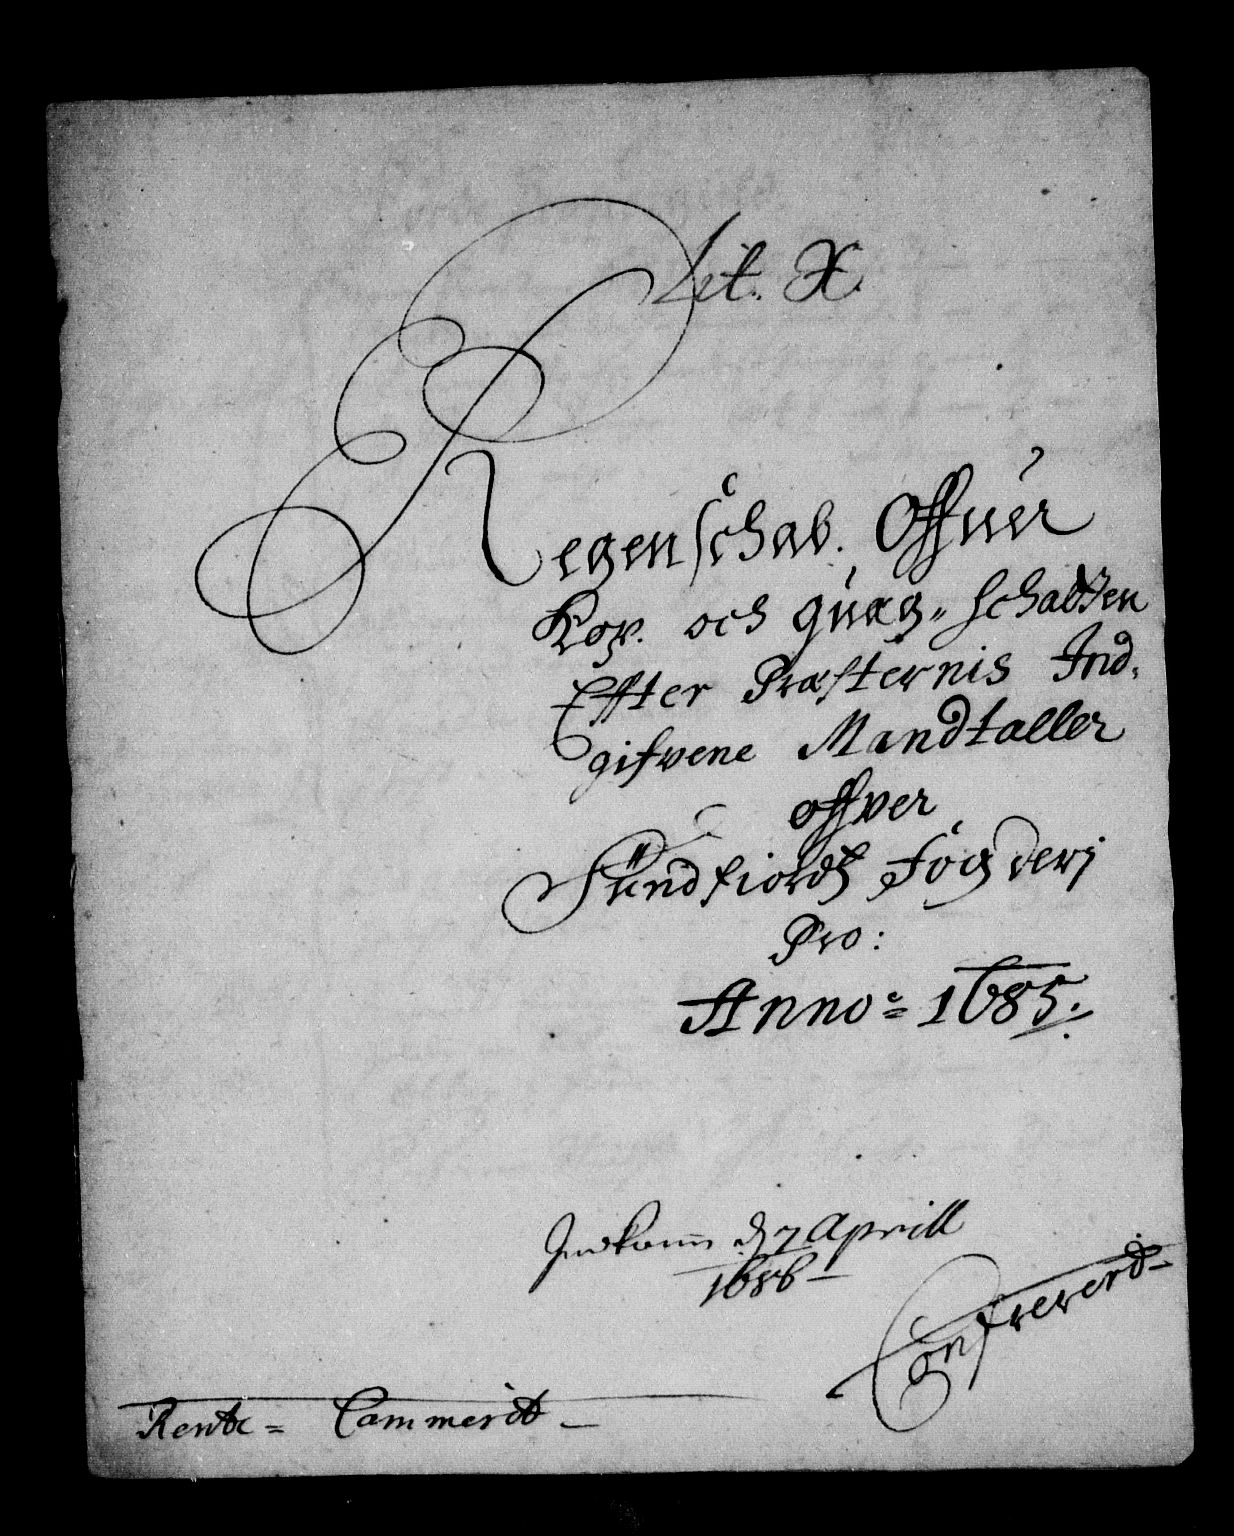 Lit. X.
Regenschab. Offuer
Kop. och quæg-schatten
Effter Præsternis Ind-
gifvene Mandtaller
offver
Sündfiords Fogderj
Pro:
Anno= 1685.
Indkom d 7 Aprill
1686
Confrererd
Rente= Cammerit